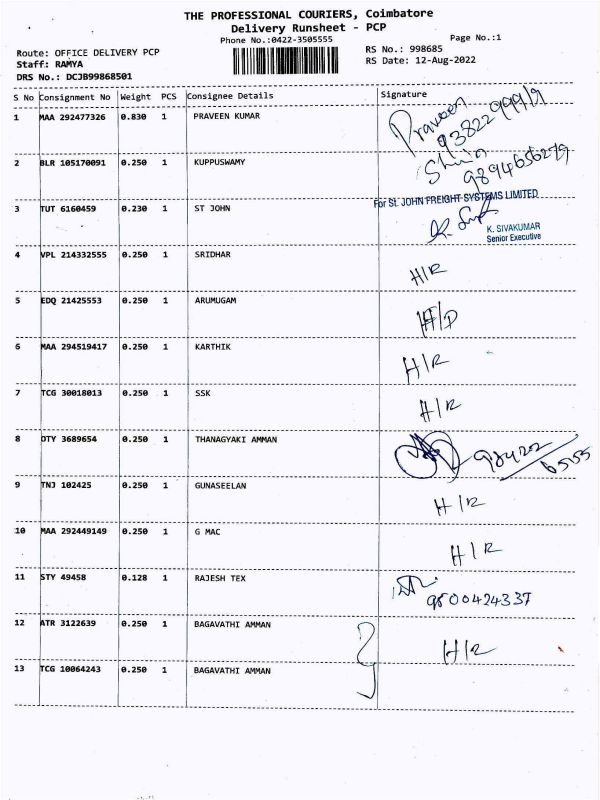 THE PROFESSIONAL COURIERS, Coimbatore
Delivery Runsheet - PCP
Phone No.:0422-3505555
Page No.:1
Route: OFFICE DELIVERY PCP
RS No.: 998685
Staff: RAMYA
RS Date: 12-Aug-2022
DRS No.: DCJB99868501
S No Consignment No Weight PCS Consignee Details Signature
1 MAA 292477326 0.830 1 PRAVEEN KUMAR Praveen
2 BLR 105170091 0.250 1 KUPPUSWAMY
9894656279
3 TUT 6160459 0.230 1 ST JOHN For St. JOHN FREIGHT SYSTEMS LIMITED
K. SIVAKUMAR
Senior Executive
4 VPL 214332555 0.250 1 SRIDHAR H/R
5 EDQ 21425553 0.250 1 ARUMUGAM H/D
6 MAA 294519417 0.250 1 KARTHIK H/R
7 TCG 30018013 0.250 1 SSK H/R
8 OTY 3689654 0.250 1 THANAGYAKI AMMAN 98422
65155
9 TNJ 102425 0.250 1 GUNASEELAN H/R
10 MAA 292449149 0.250 1 G MAC H/R
11 STY 49458 0.128 1 RAJESH TEX
9500424337
12 ATR 3122639 0.250 1 BAGAVATHI AMMAN H/R
13 TCG 10064243 0.250 1 BAGAVATHI AMMAN